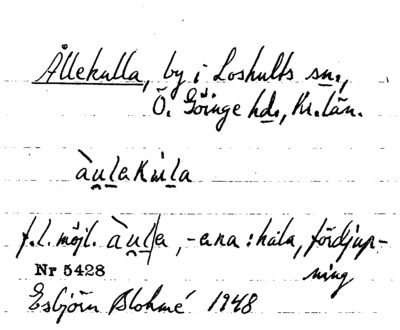 Ållekulla, by i Loshults sn.,
Ö. Göinge hd., Kr. län.
àu̯lakùla
f.l. möjl. àu̯la, -ana : håla, fördjup-
ning
Nr 5428
Esbjörn Blohmé 1948